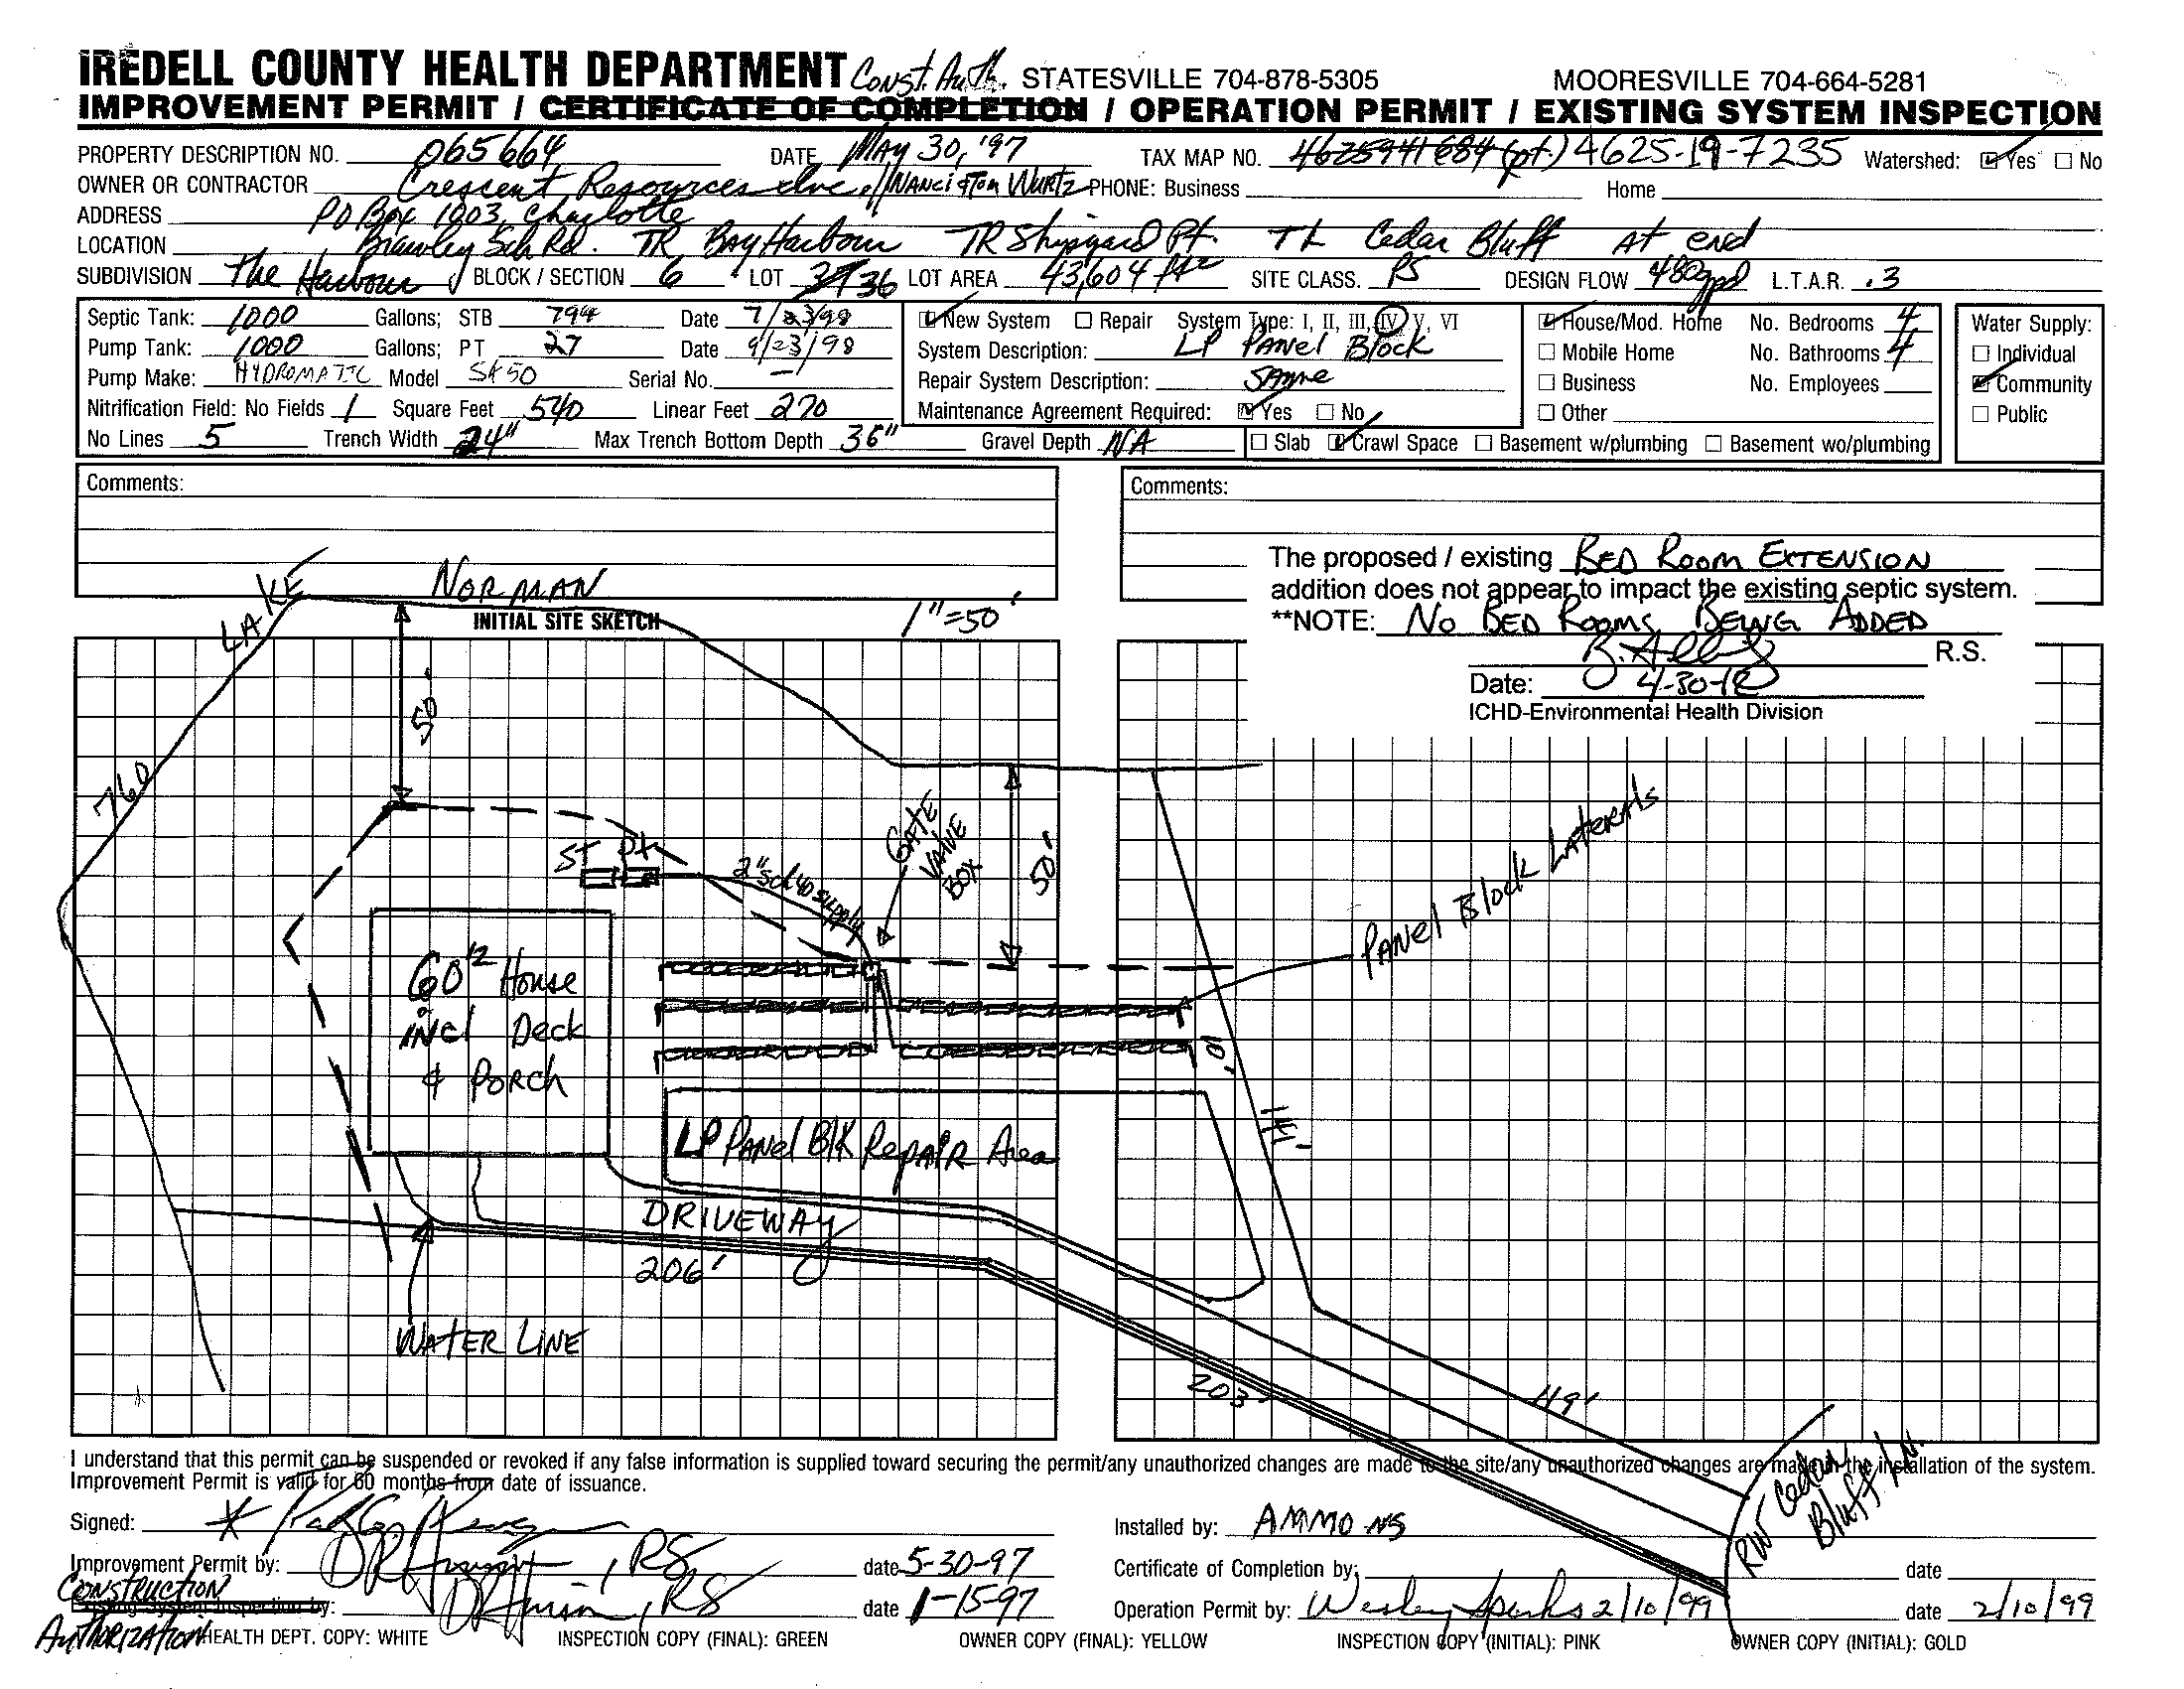 IREDELL COUNTY HEALTH DEPARTMENT Const. Auth. STATESVILLE 704-878-5305 MOORESVILLE 704-664-5281
IMPROVEMENT PERMIT / CERTIFICATE OF COMPLETION / OPERATION PERMIT / EXISTING SYSTEM INSPECTION
PROPERTY DESCRIPTION NO. 065664 DATE May 30, '97 TAX MAP NO. 4625941684 (pt.) 4625-19-7235 Watershed: Yes No
OWNER OR CONTRACTOR Crescent Resources Inc. // Nanci & Tom Wurtz PHONE: Business Home
ADDRESS PO Box 1003, Charlotte
LOCATION Brawley Sch Rd. TR Bay Harbour TR Shipyard Pt. TL Cedar Bluff At end
SUBDIVISION The Harbour BLOCK / SECTION 6 LOT 37 36 LOT AREA 43,604 ft² SITE CLASS. PS DESIGN FLOW 480gpd L.T.A.R. .3
Septic Tank: 1000 Gallons; STB 794 Date 7/23/98 New System Repair System Type: I, II, III, IV, V, VI House/Mod. Home No. Bedrooms 4 Water Supply:
Pump Tank: 1000 Gallons; PT 27 Date 9/23/98 System Description: LP Panel Block Mobile Home No. Bathrooms 4 Individual
Pump Make: HYDROMATIC Model SK50 Serial No. — Repair System Description: Same Business No. Employees Community
Nitrification Field: No Fields 1 Square Feet 540 Linear Feet 270 Maintenance Agreement Required: Yes No Other Public
No Lines 5 Trench Width 24" Max Trench Bottom Depth 36" Gravel Depth NA Slab Crawl Space Basement w/plumbing Basement wo/plumbing
Comments: Comments:
The proposed / existing BED ROOM EXTENSION
addition does not appear to impact the existing septic system.
**NOTE: NO BED ROOMS BEING ADDED
R.S.
Date: 4-30-12
ICHD-Environmental Health Division
LAKE NORMAN
INITIAL SITE SKETCH 1"=50'
50'
760
ST Pt
2" sch 40 supply
GATE VALVE BOX
50'
Panel Block Laterals
60'² House
incl Deck
& Porch
10'
141'
LP Panel Blk Repair Area
DRIVEWAY
206'
WATER LINE
203'
49'
RW Cedar Bluff LN.
I understand that this permit can be suspended or revoked if any false information is supplied toward securing the permit/any unauthorized changes are made to the site/any unauthorized changes are made in the installation of the system.
Improvement Permit is valid for 60 months from date of issuance.
Signed: * Installed by: AMMONS
Improvement Permit by: , RS date 5-30-97 Certificate of Completion by: date
Construction Existing System Inspection by: , RS date 1-15-97 Operation Permit by: Wesley Sparks 2/10/99 date 2/10/99
Authorization HEALTH DEPT. COPY: WHITE INSPECTION COPY (FINAL): GREEN OWNER COPY (FINAL): YELLOW INSPECTION COPY (INITIAL): PINK OWNER COPY (INITIAL): GOLD